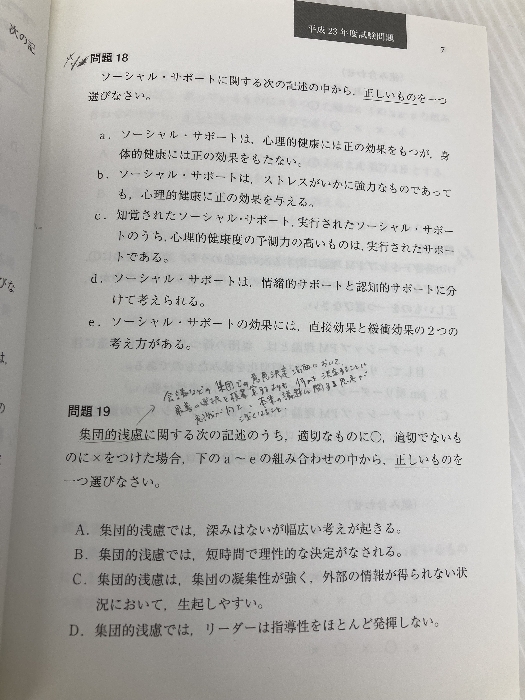 平成23年度試験問題
7
次の記
問題18
ソーシャル・サポートに関する次の記述の中から，正しいものを一つ
選びなさい。
a．ソーシャル・サポートは，心理的健康には正の効果をもつが，身
体的健康には正の効果をもたない。
b．ソーシャル・サポートは，ストレスがいかに強力なものであって
も，心理的健康に正の効果を与える。
c．知覚されたソーシャル・サポート，実行されたソーシャル・サポー
トのうち，心理的健康度の予測力の高いものは，実行されたサポー
トである。
d．ソーシャル・サポートは，情緒的サポートと認知的サポートに分
けて考えられる。
e．ソーシャル・サポートの効果には，直接効果と緩衝効果の２つの
考え方がある。
会議などの集団での意思決定場面において
問題19
集団的浅慮に関する次の記述のうち，適切なものに○，適切でないも
のに×をつけた場合，下のa～eの組み合わせの中から，正しいものを
一つ選びなさい。
A．集団的浅慮では，深みはないが幅広い考えが起きる。
B．集団的浅慮では，短時間で理性的な決定がなされる。
C．集団的浅慮は，集団の凝集性が強く，外部の情報が得られない状
況において，生起しやすい。
D．集団的浅慮では，リーダーは指導性をほとんど発揮しない。